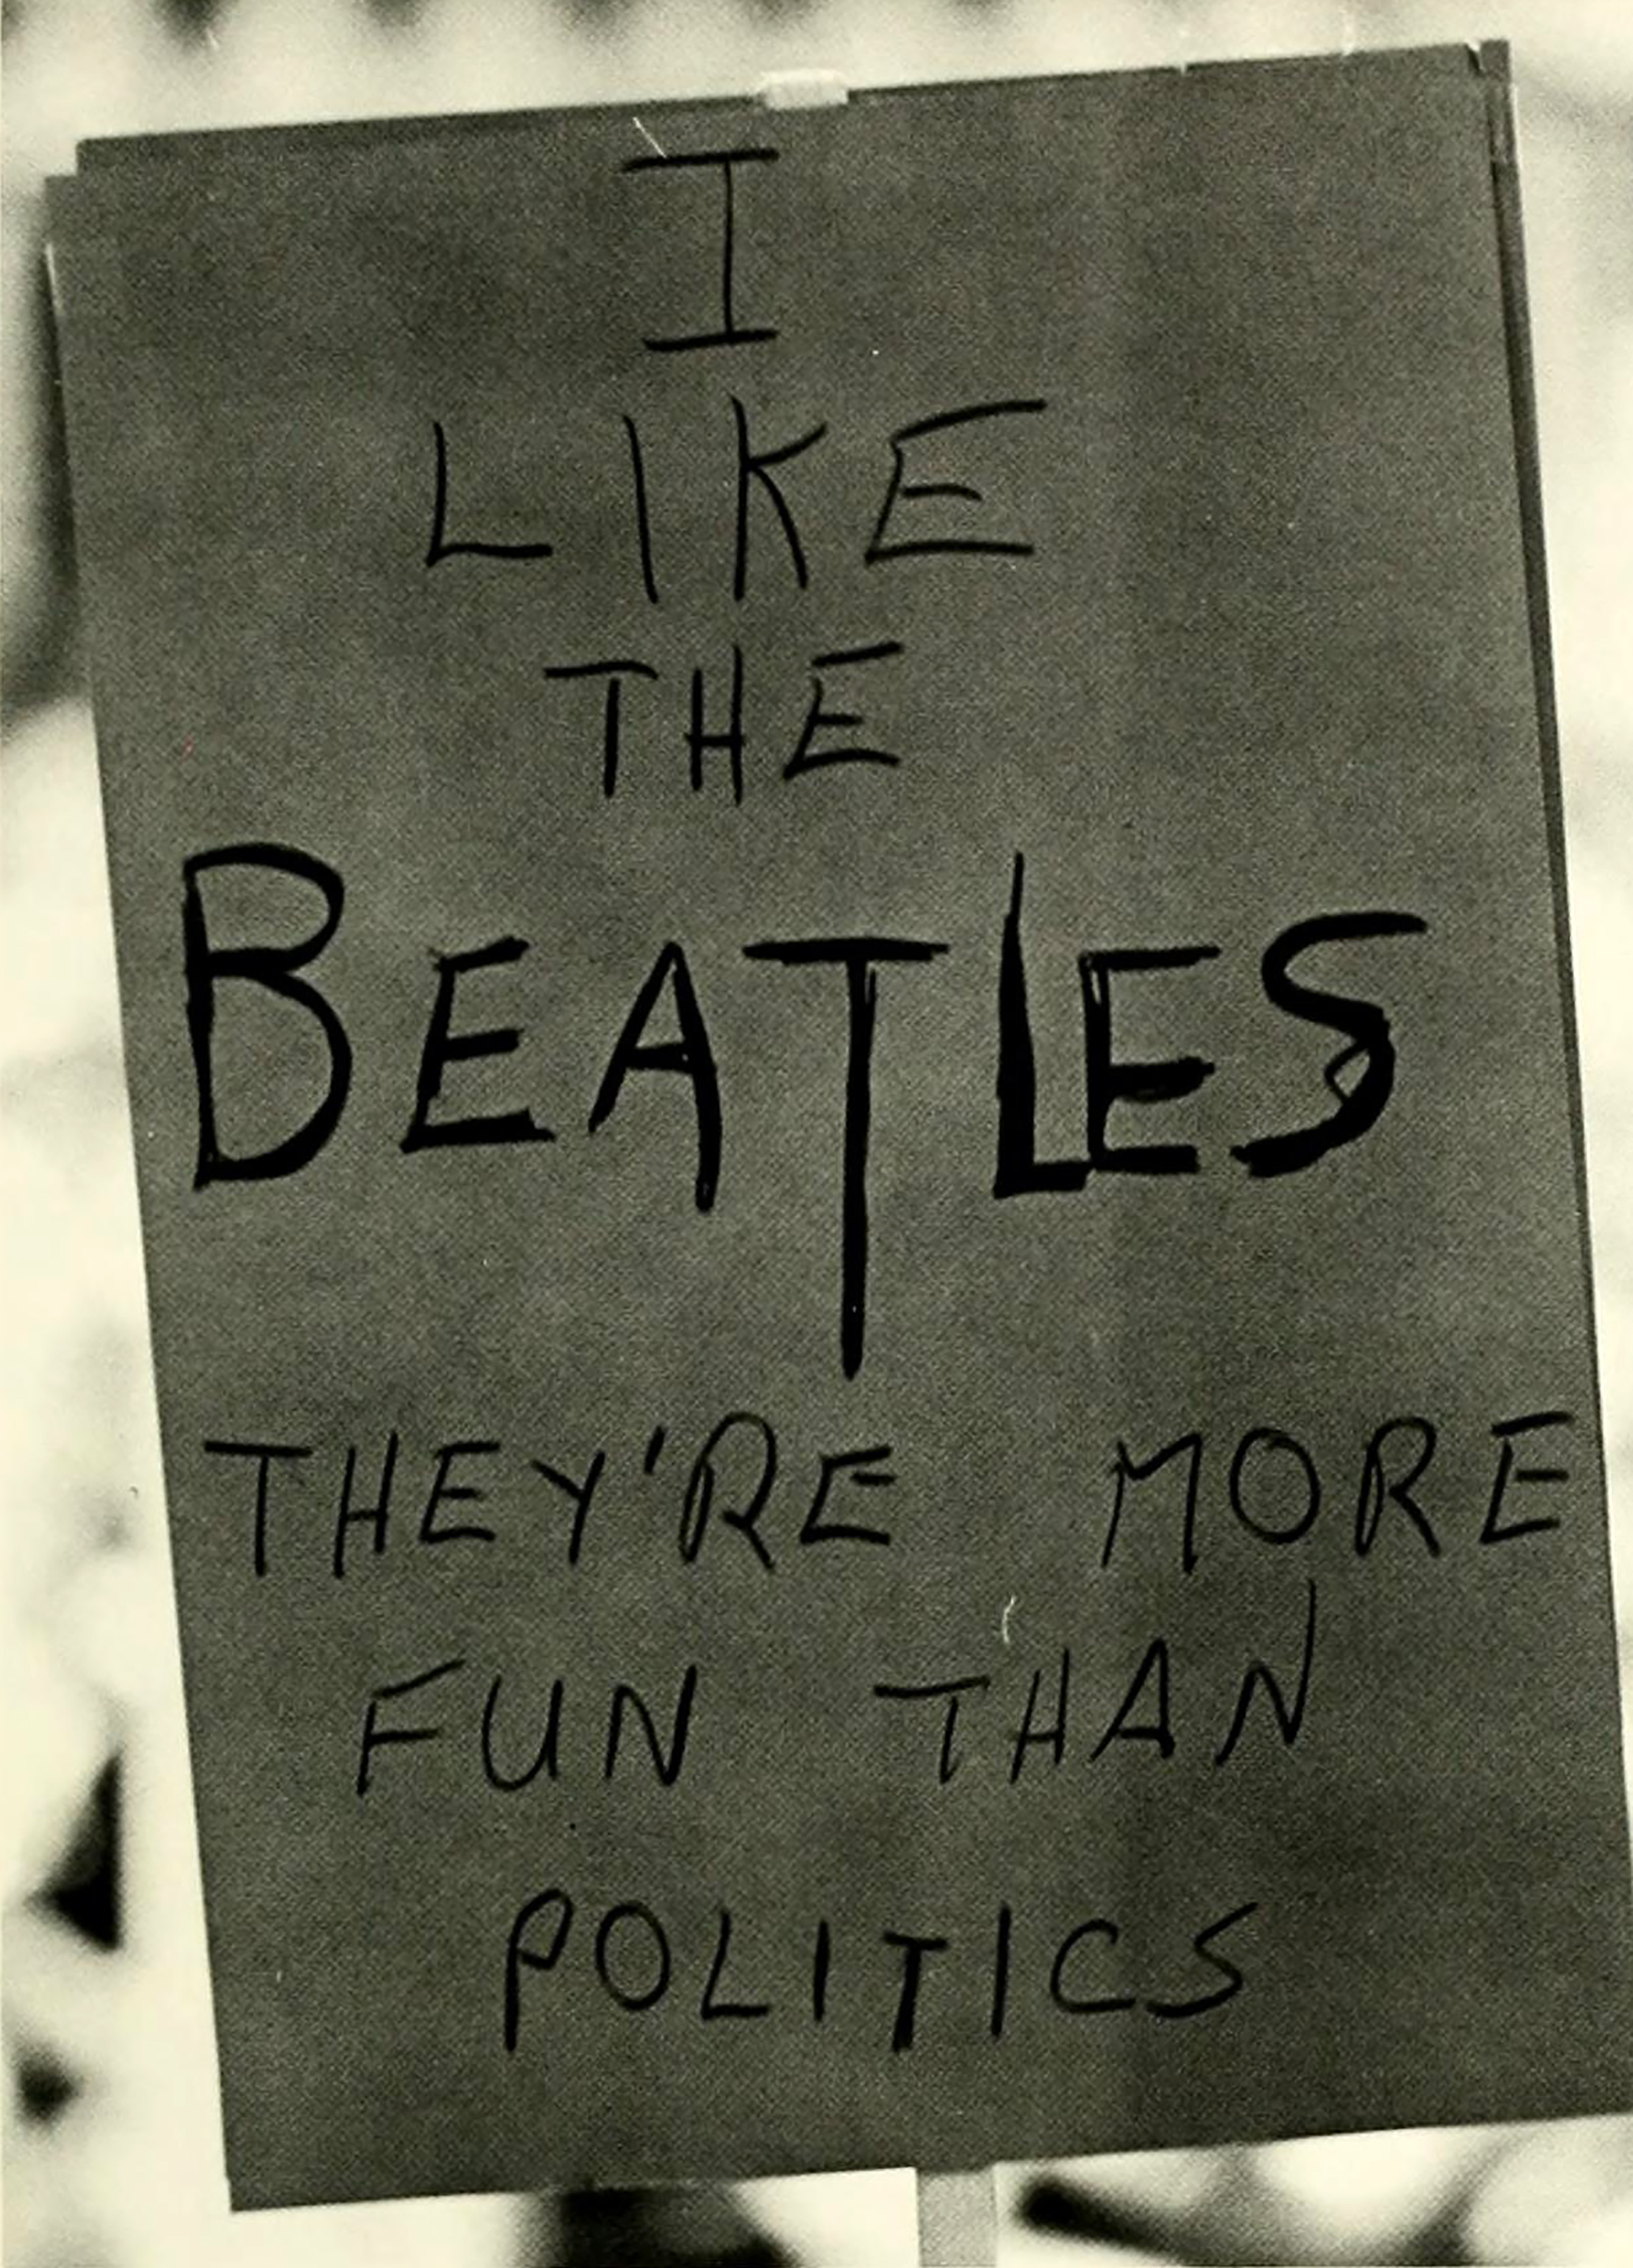 I
LIKE
THE
BEATLES
THEY'RE MORE
FUN THAN
POLITICS